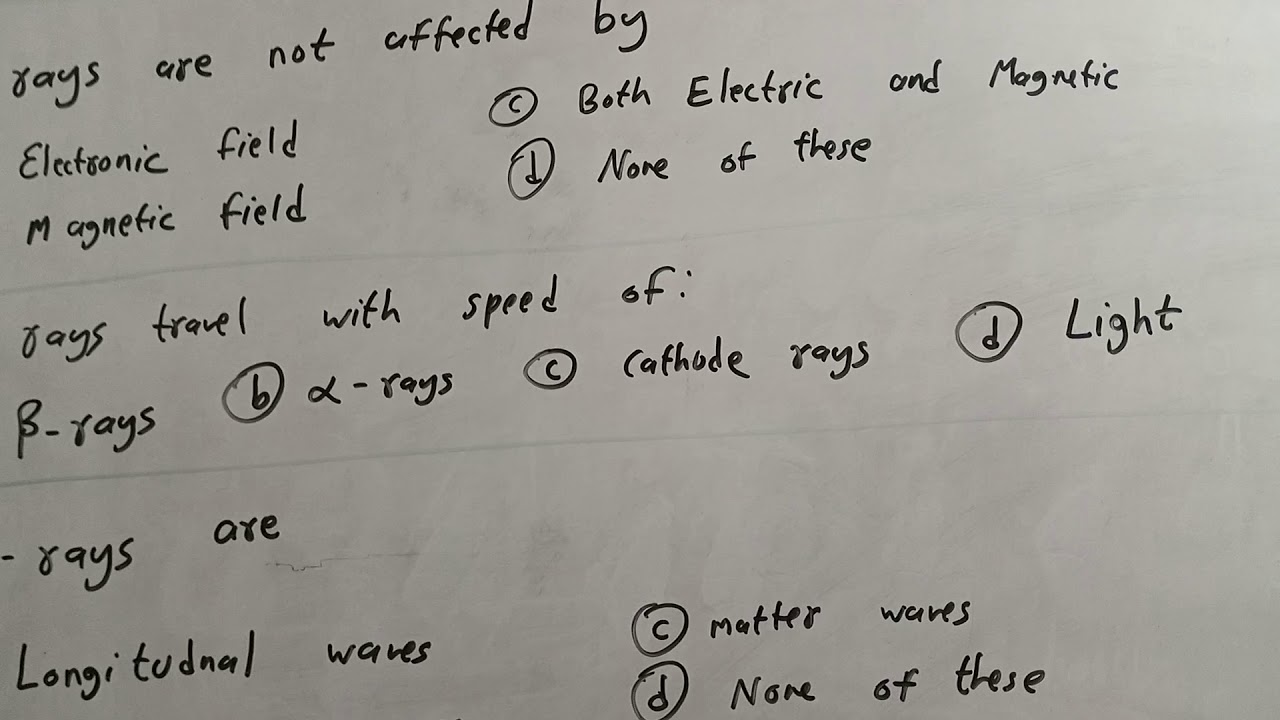 rays are not affected by
Electronic field
© Both Electric and Magnetic
Magnetic field
ⓓ None of these
rays travel with speed of:
β-rays ⓑ α-rays © Cathode rays ⓓ Light
- rays are
Longitudnal waves
© matter waves
ⓓ None of these